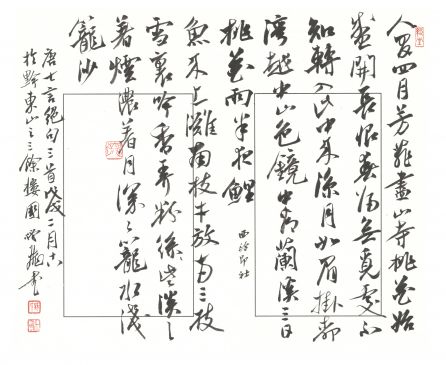 人間四月芳菲盡山寺桃花始
盛開長恨春歸無覓處不
知轉入此中來涼月如眉掛柳
灣越中山色鏡中看蘭溪三日
桃花雨半夜鯉
魚來上灘南枝才放兩三枝
雪裏吟香弄粉些淡々
着煙濃着月深々籠水淺
籠沙
唐七言絕句三首戊戌二月十六
於黔東山之三餘樓國
西泠印社